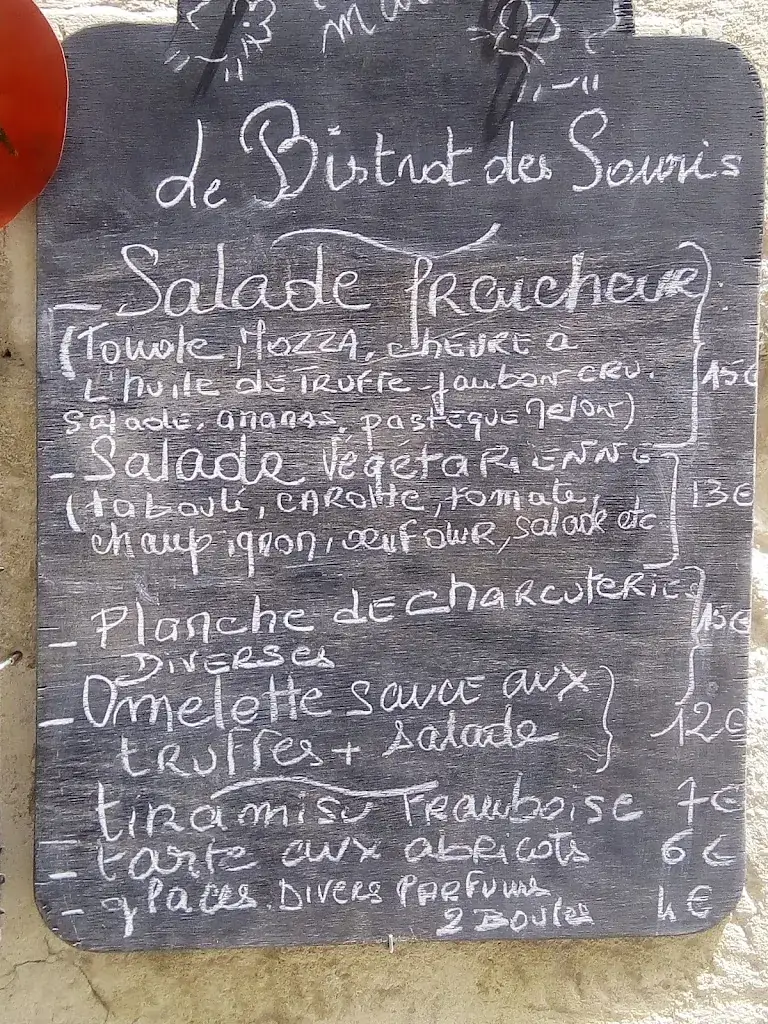 de Bistrot des Souris
- Salade fraicheur
(Tomate, MOZZA, chÈVRE à 15€
L'huile de TRUFFE - jambon CRU.
salade, ananas, pastèque melon)
- Salade végétarienne
(taboulé, carotte, tomate, 13€
champignon, oeuf dur, salade etc
- Planche de charcuteries 15€
Diverses
- Omelette sauce aux 12€
truffes + salade
- tiramisu framboise 7€
- tarte aux abricots 6€
- glaces. Divers parfums 4€
2 Boules